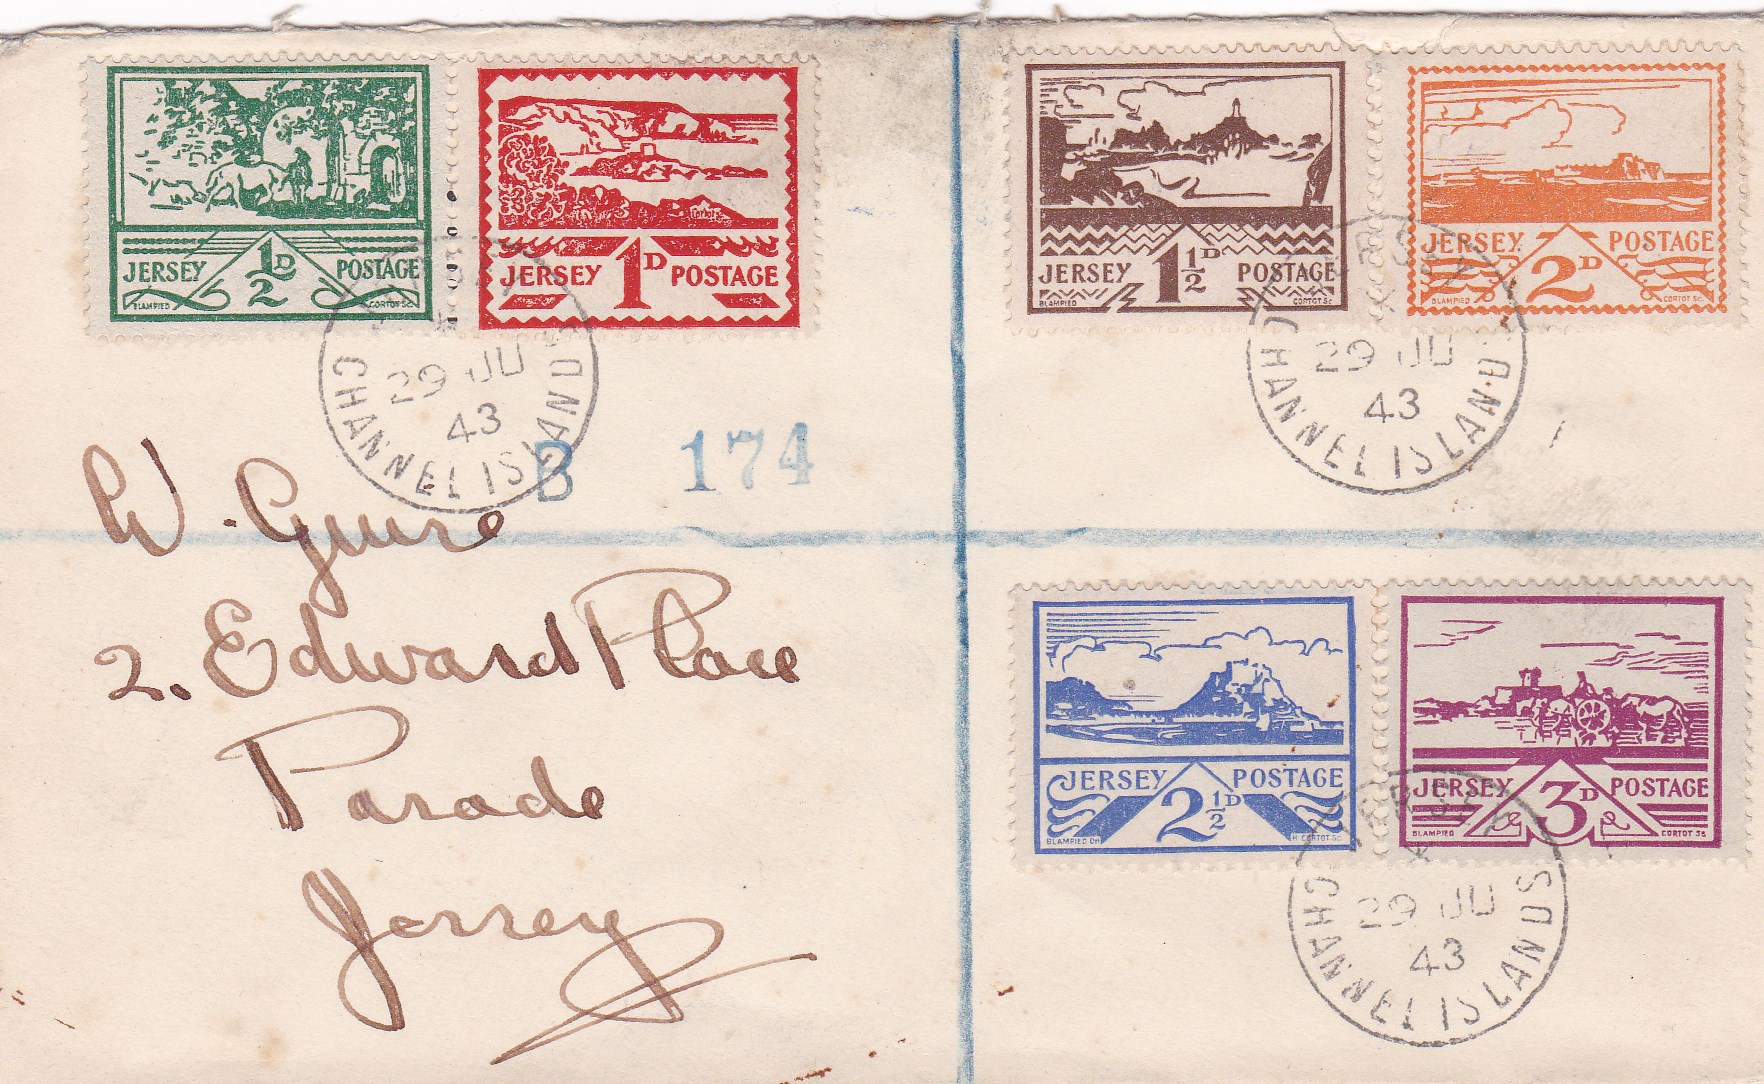 JERSEY ½D POSTAGE
BLAMPIED CORTOT Sc.
JERSEY 1D POSTAGE
JERSEY 1½D POSTAGE
BLAMPIED CORTOT Sc
JERSEY 2D POSTAGE
BLAMPIED CORTOT Sc.
JERSEY
29 JU
43
CHANNEL ISLANDS
JERSEY
29 JU
43
CHANNEL ISLANDS
B 174
W. Guire
2. Edward Place
Parade
Jersey
JERSEY 2½D POSTAGE
BLAMPIED Del H. CORTOT Sc.
JERSEY 3D POSTAGE
BLAMPIED CORTOT Sc
JERSEY
29 JU
43
CHANNEL ISLANDS